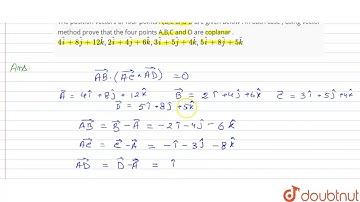 The position vectors of four points A,B,C and D are given below . In each case , using vector
method prove that the four points A,B,C and D are coplanar .
4î + 8ĵ + 12k̂, 2î + 4ĵ + 6k̂, 3î + 5ĵ + 4k̂, 5î + 8ĵ + 5k̂
Ans
AB⃗ . (AC⃗ × AD⃗) = 0
A⃗ = 4î + 8ĵ + 12k̂ B⃗ = 2î + 4ĵ + 6k̂ C⃗ = 3î + 5ĵ + 4k̂
D⃗ = 5î + 8ĵ + 5k̂
AB⃗ = B⃗ - A⃗ = -2î - 4ĵ - 6k̂
AC⃗ = C⃗ - A⃗ = -î - 3ĵ - 8k̂
AD⃗ = D⃗ - A⃗ = î
doubtnut